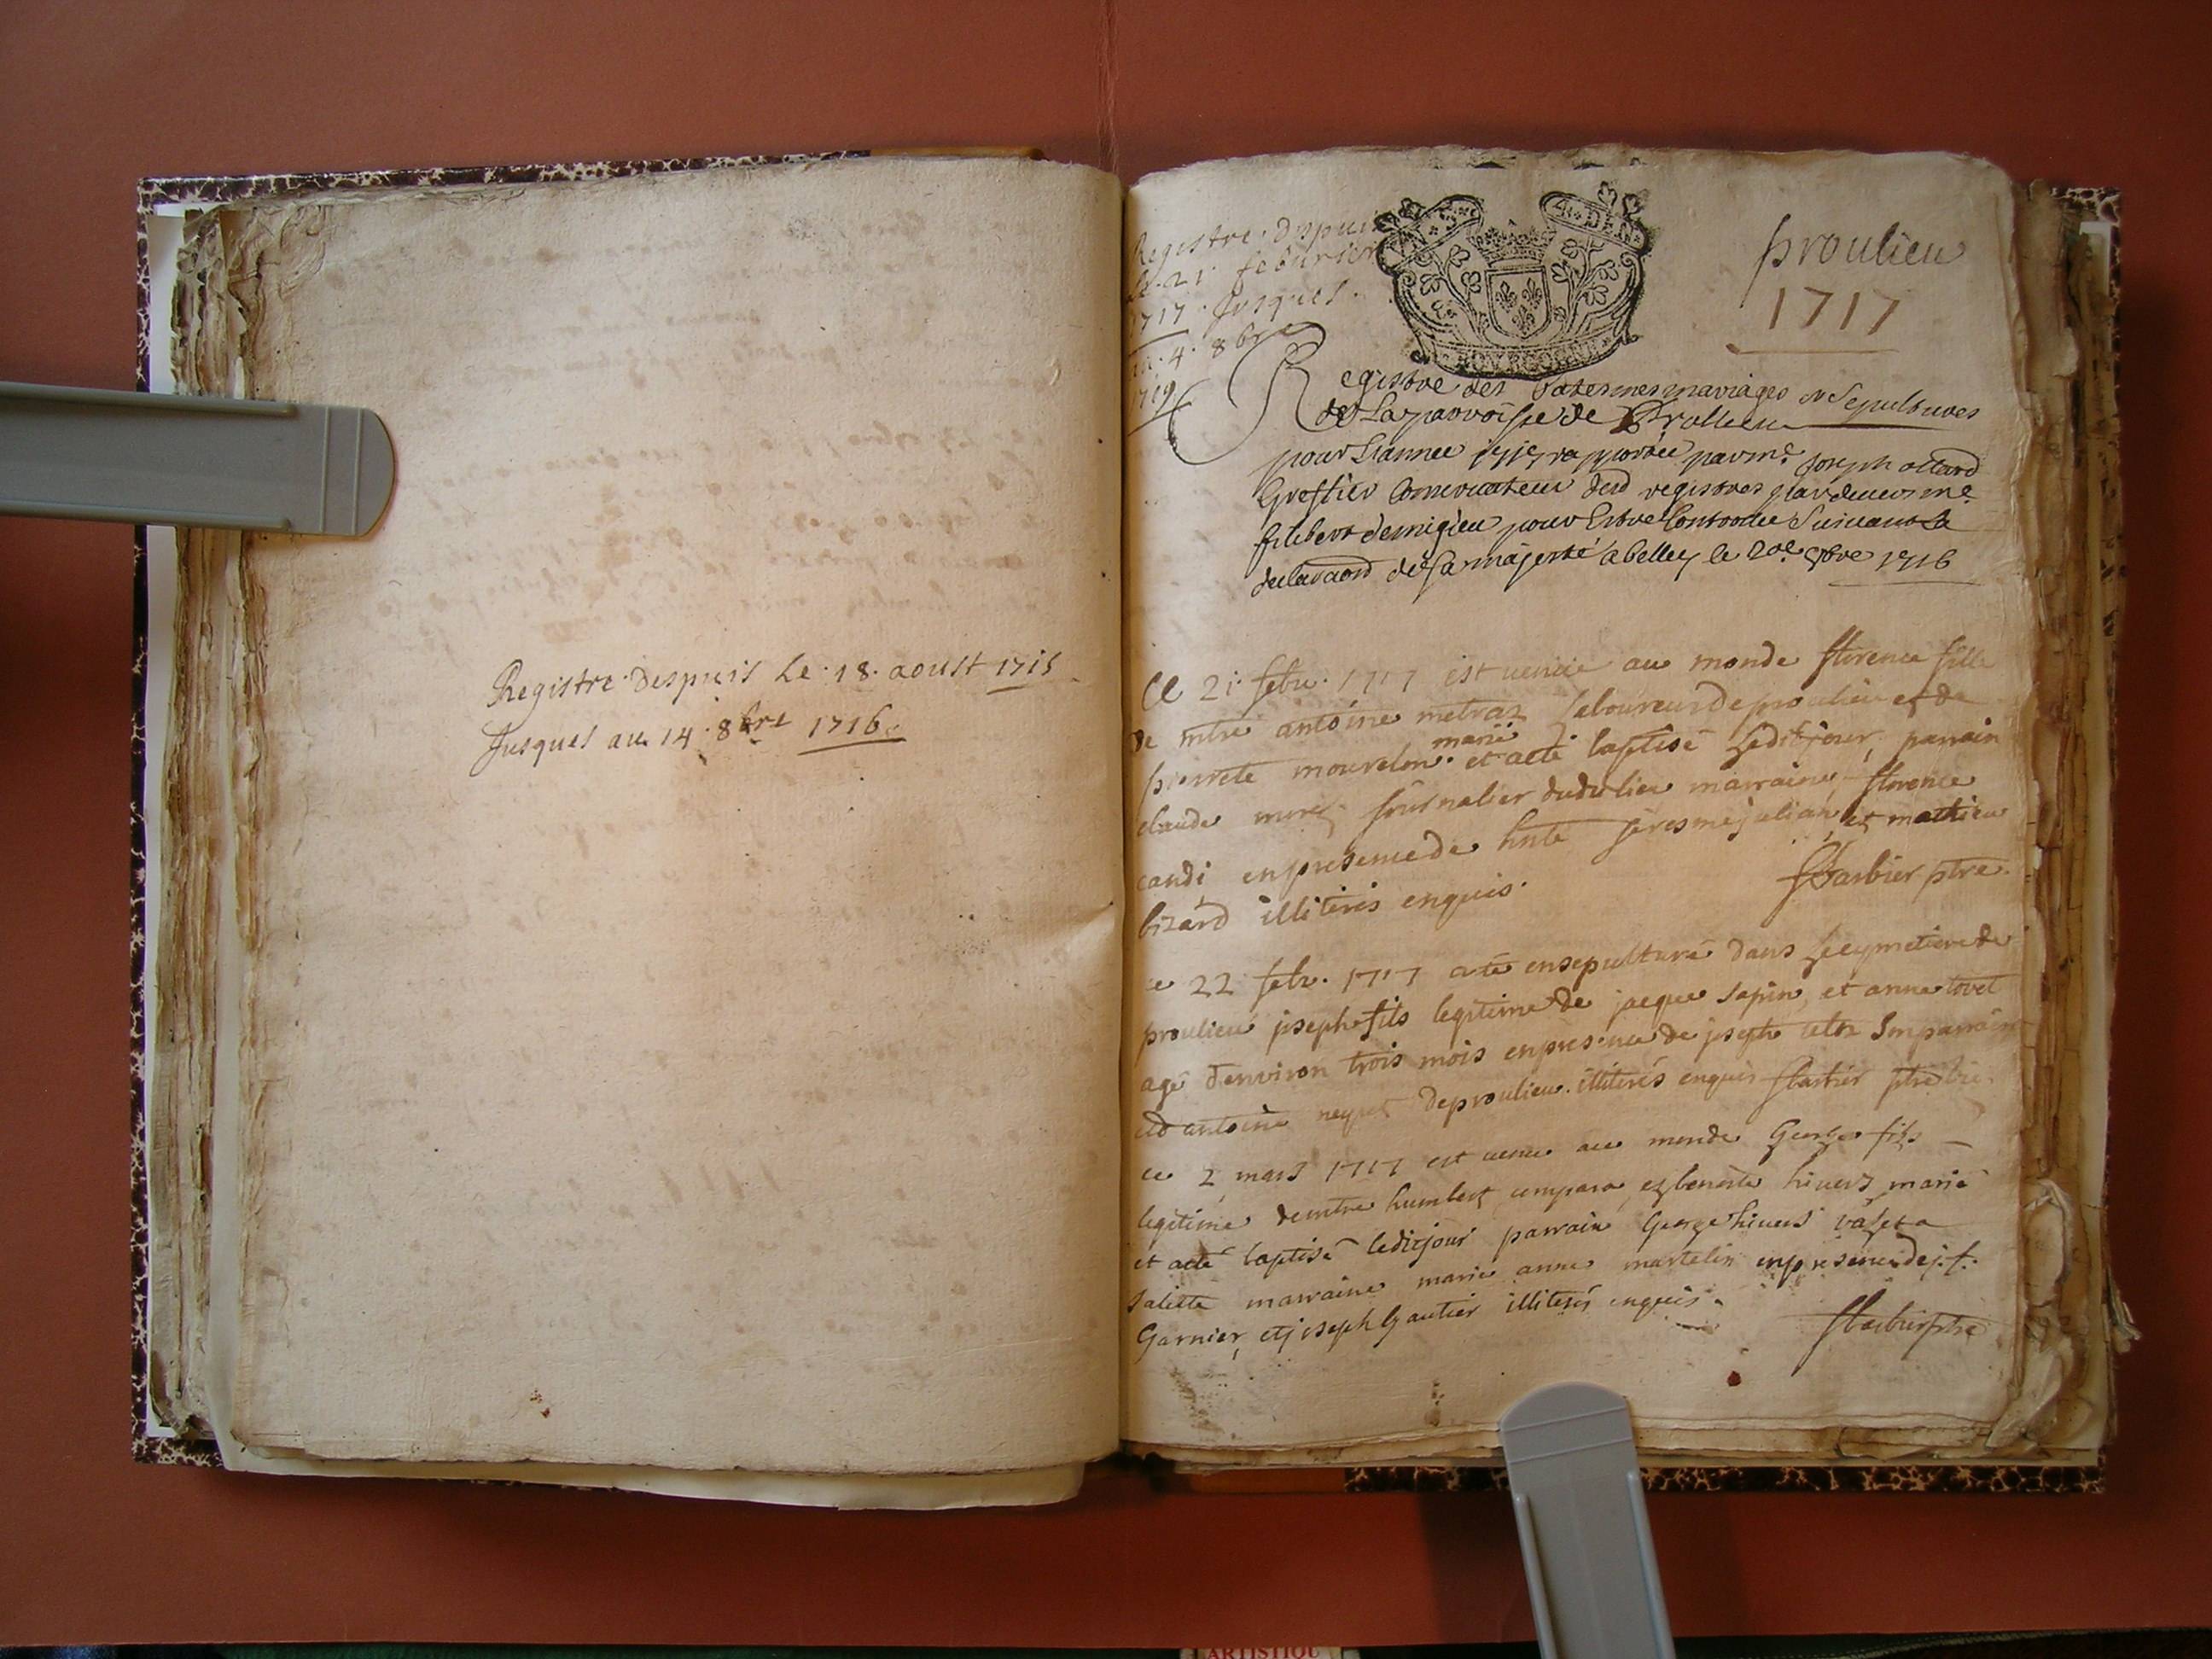 Registre Despuis Le 18 aoust 1715
Jusques au 14 8bre 1716
Registre Depuis
le 21 febvrier
1717 Jusques
au 4 8bre
1719
4 DEN
BOURGOGNE
proulieu
1717
Registre des batesmes mariages et Sepultures
de La parroisse de Prollieu
pour L'annee 1717 rapportée par me Joseph
Greffier Conservateur desd registres par devers me
filibert demigieu pour Estre Controollé Suivant La
declaraon de Sa majesté a belley le 20e 9bre 1716
Ce 21 febr. 1717 est venüe au monde florence fille
de mtre antoine metraz laboureur de proulieu et de
pierrete mourelon marié et a eté baptisé ledit jour, parrain
claude journalier dudit lieu marraine florence
candi en presence de hnte et mathieu
bizard illiterés enquis.
fBarbier ptre
ce 22 febr. 1717 a eté ensepulturé dans le cymetiere de
proulieu joseph fils legitime de jaque Sapin et anne
agé d'environ trois mois en presence de joseph Son parrain
et antoine de proulieu illiterés enquis fbarbier ptre
ce 2 mars 1717 est venu au monde George fils
legitime de mtre humbert et benoite hivert marié
et a eté baptisé ledit jour parrain George hivert valet a
Saliette marraine marie anne martelin en presence de j. f.
Garnier, et joseph Gautier illiterés enquis.
fbarbier ptre
ARTISTIQU